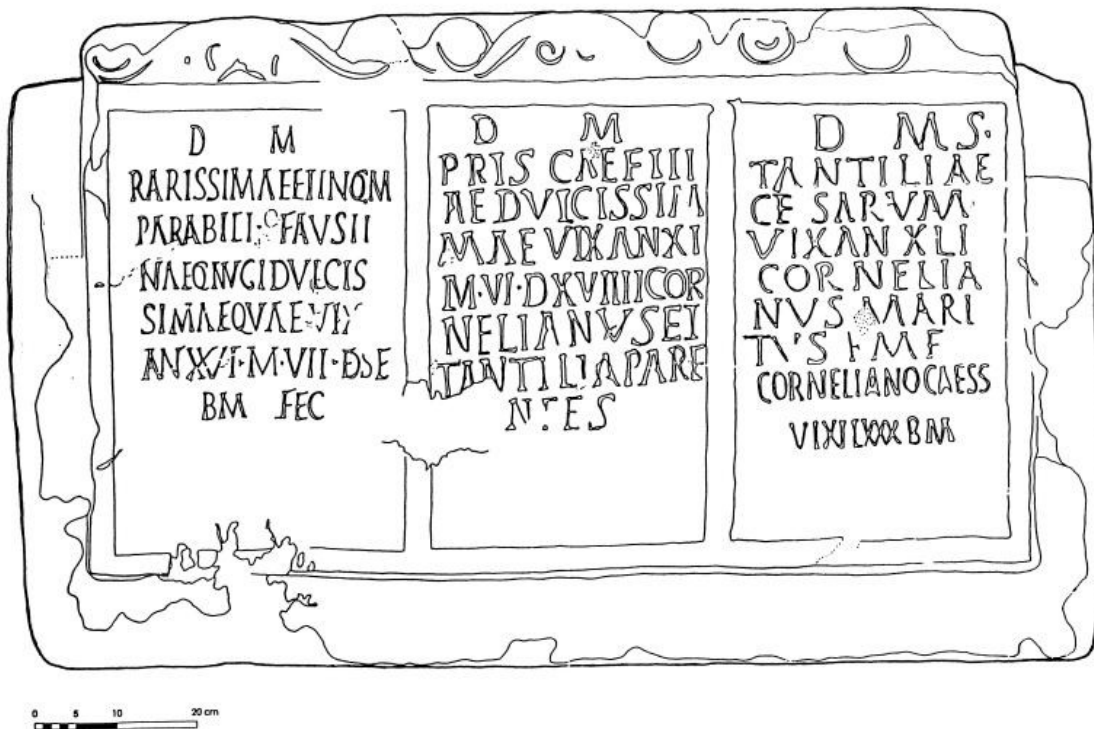 D M
RARISSIMAEETINQM
PARABILI · FAVSTI
NAECONVGIDVLCIS
SIMAEQVAEVIX
ANXVI · M · VII · DSE
BM FEC
D M
PRISCAEFILI
AEDVLCISSIM
MAEVIXANXI
M · VI · DXVIIIICOR
NELIANVSET
TANTILIAPARE
NTES
D M S ·
TANTILIAE
CESARVM
VIXANXLI
CORNELIA
NVS MARI
TVS
CORNELIANOCAESS
VIXILXXXBM
0 5 10 20 cm